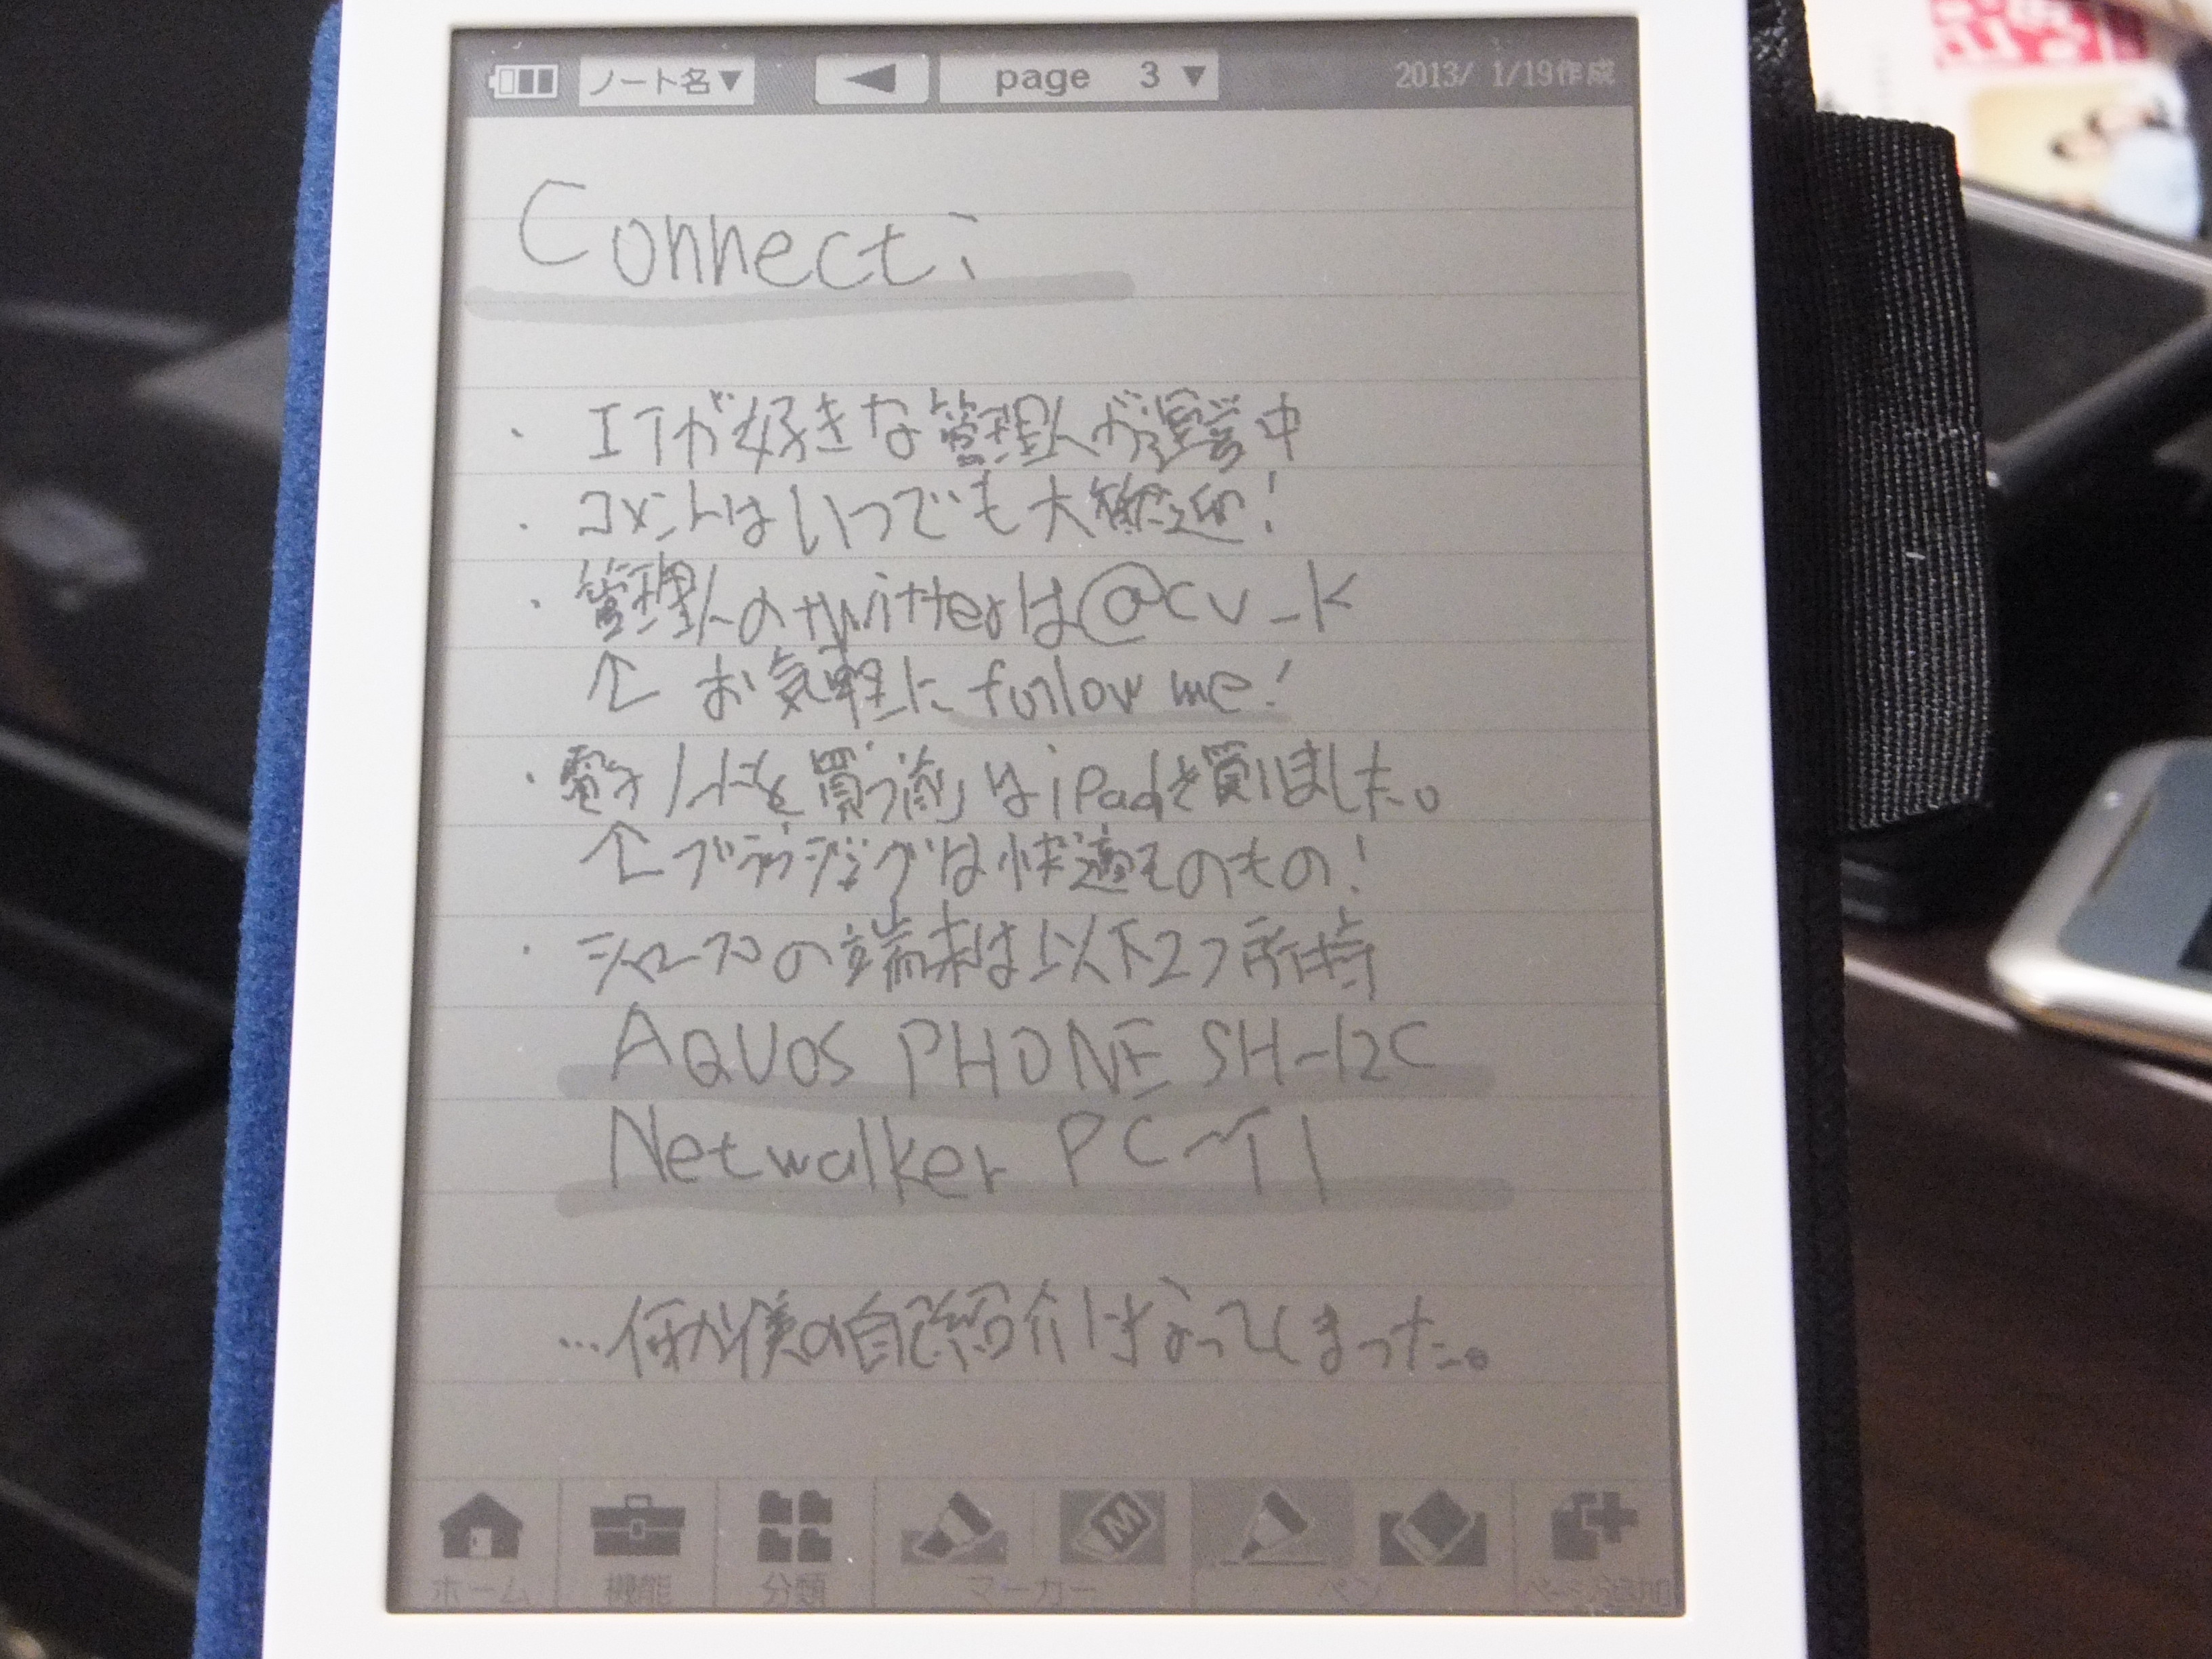 ノート名▼ ◀ page 3 ▼ 2013/ 1/19作成
Connect:
・ITが好きな管理人が運営中
・コメントはいつでも大歓迎!
・管理人のtwitterは@cv_k
↑ お気軽に follow me!
・電子ノートを買う前はiPadを買いました。
↑ブラウジングは快適そのもの!
・シャープの端末は以下2つ所持
AQUOS PHONE SH-12C
Netwalker PC-T1
…何か僕の自己紹介になってしまった。
ホーム 機能 分類 マーカー ペン ページ追加